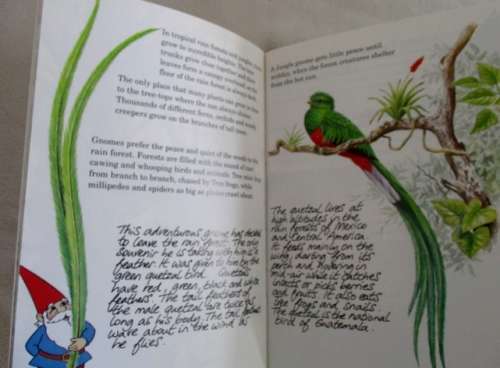 In tropical rain forests and jungles trees
grow to incredible heights. Their
trunks grow close together and their
leaves form a canopy overhead, so the
floor of the rain forest is always dark.
The only place that many plants can grow is close
to the tree-tops where the sun shines
Thousands of different ferns, orchids and
creepers grow on the branches of tall trees.
Gnomes prefer the peace and quiet of the woods to the
rain forest. Forests are filled with the sound of
cawing and whooping birds and animals. Tree
from branch to branch, chased by Tree frogs, while
millipedes and spiders as big as plates crawl about
This adventurous gnome has decided
to leave the rain forest. The only
souvenir he is taking with him is a
feather. It was given to him by the
green quetzal bird. Quetzals
have red, green, black and white
feathers. The tail feathers of
the male quetzal are twice as
long as his body. The tail feathers
wave about in the wind as
he flies.
A Jungle gnome gets little peace until
midday, when the forest creatures shelter
from the hot sun.
The quetzal lives at
high altitudes in the
rain forests of Mexico
and Central America.
It feeds mainly on the
wing, darting from its
perch and hovering in
mid-air while it catches
insects or picks berries
and fruits. It also eats
tree frogs and snails.
The quetzal is the national
bird of Guatemala.